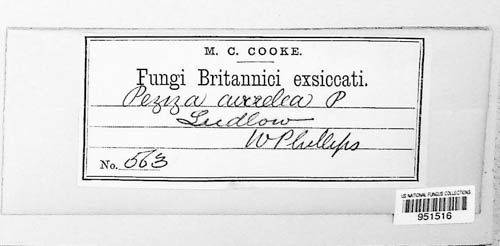 M. C. COOKE.
Fungi Britannici exsiccati.
Peziza aurelea P
Ludlow
W Phillips
No. 563
US NATIONAL FUNGUS COLLECTIONS
951516